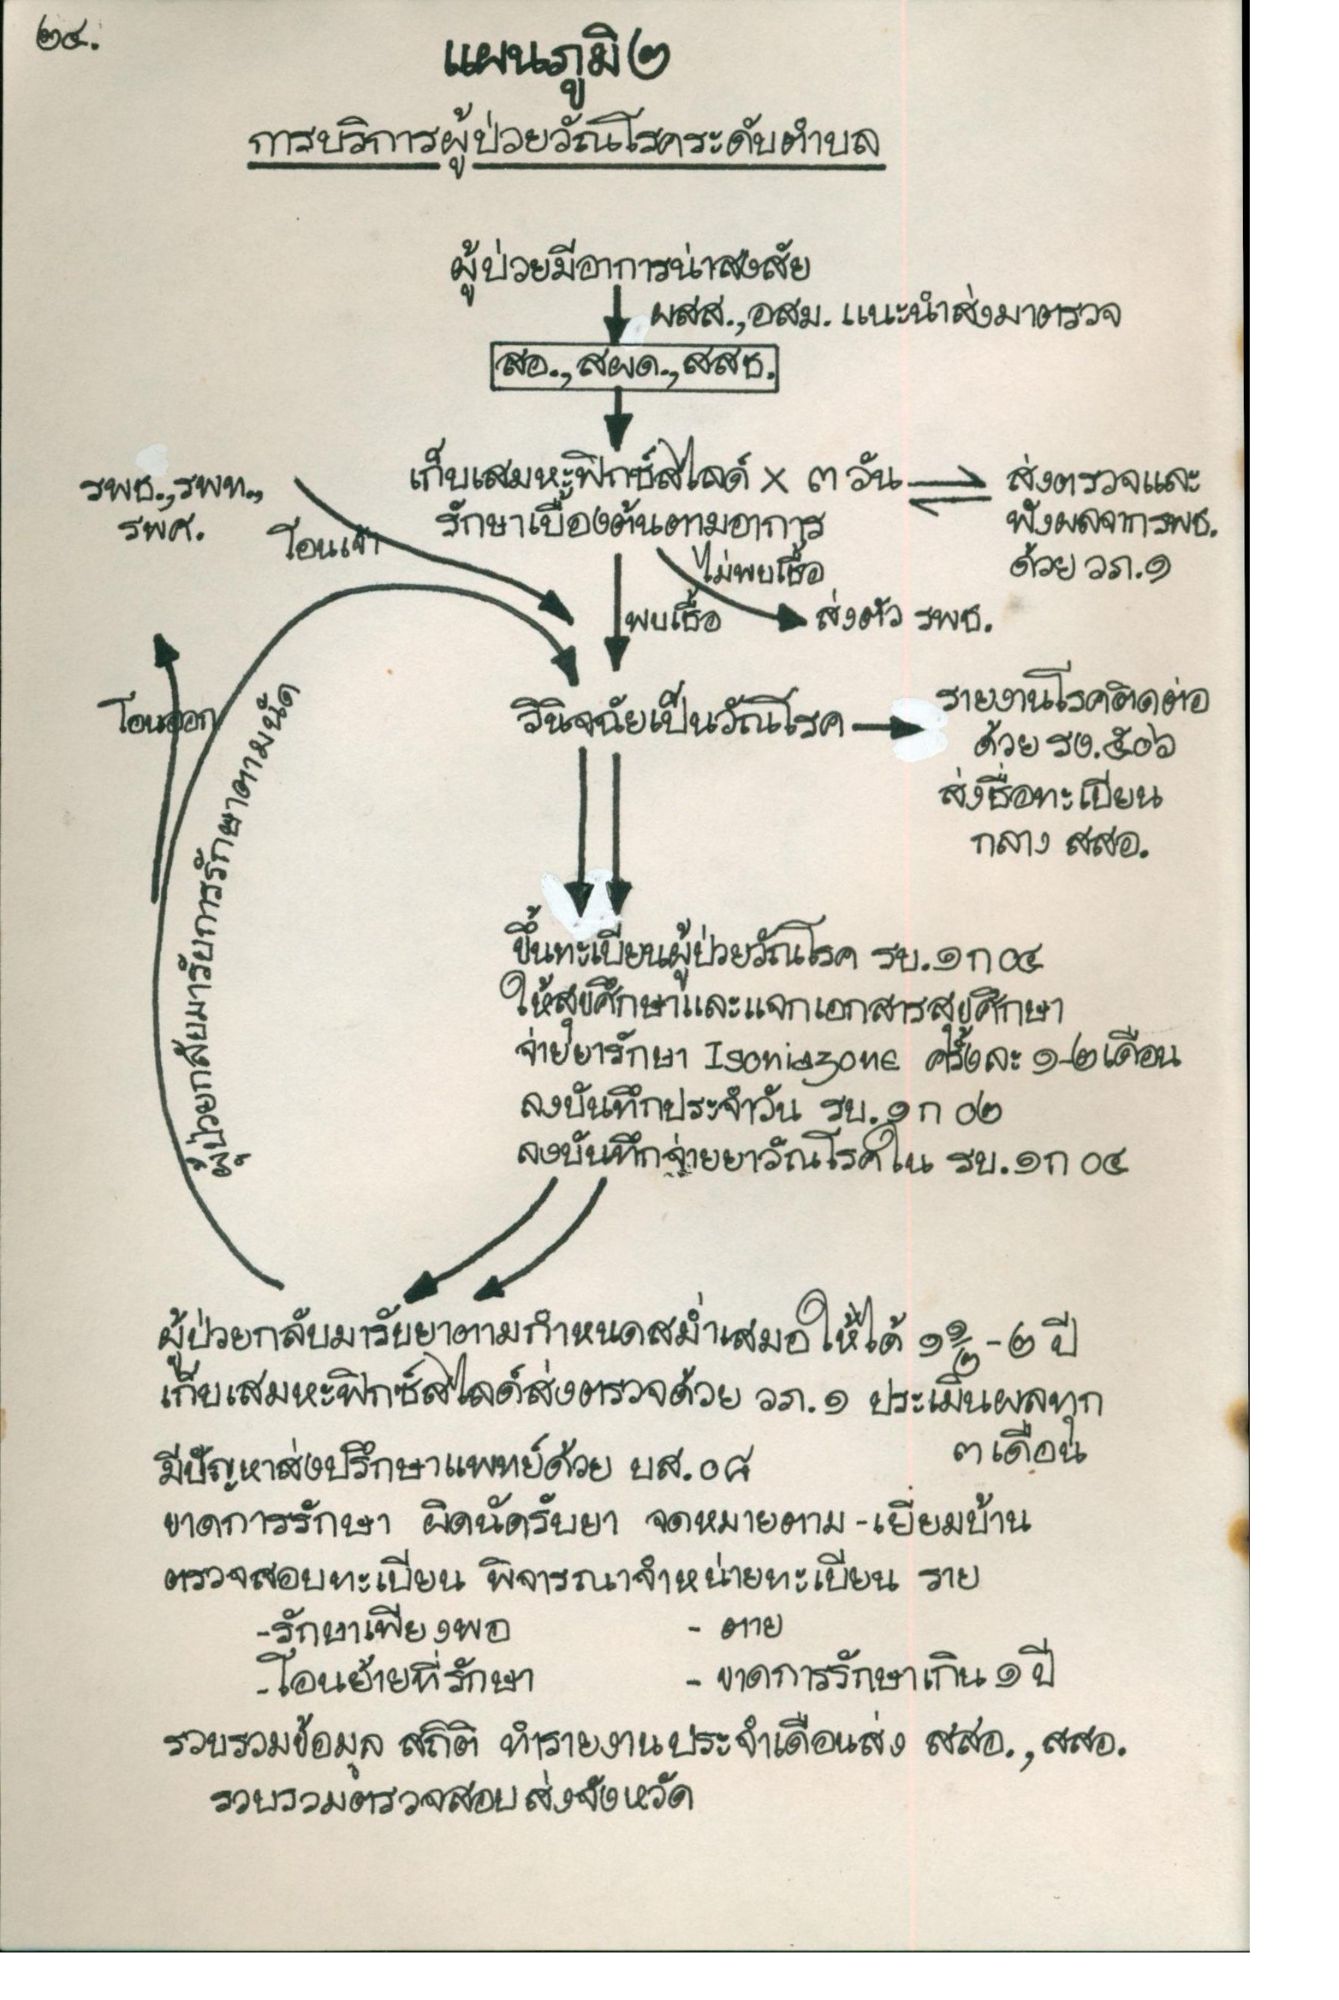 ๒๔.
แผนภูมิ ๒
การบริการผู้ป่วยวัณโรคระดับตำบล
ผู้ป่วยมีอาการน่าสงสัย
ผสส., อสม. แนะนำส่งมาตรวจ
สอ., สผด., สสช.
เก็บเสมหะฟิกซ์สไลด์ x ๓ วัน
รักษาเบื้องต้นตามอาการ
ส่งตรวจและ
ฟังผลจากรพช.
ด้วย วภ.๑
รพช., รพท.,
รพศ.
โอนเข้า
ไม่พบเชื้อ
พบเชื้อ
ส่งตัว รพช.
โอนออก
ผู้ป่วยกลับมารับการรักษาตามนัด
วินิจฉัยเป็นวัณโรค
รายงานโรคติดต่อ
ด้วย รง.๕๐๖
ส่งชื่อทะเบียน
กลาง สสอ.
ขึ้นทะเบียนผู้ป่วยวัณโรค รบ.๑ก ๐๔
ให้สุขศึกษาและแจกเอกสารสุขศึกษา
จ่ายยารักษา Isoniazone ครั้งละ ๑-๒ เดือน
ลงบันทึกประจำวัน รบ.๑ก ๐๒
ลงบันทึกจ่ายยาวัณโรคใน รบ.๑ก ๐๔
ผู้ป่วยกลับมารับยาตามกำหนดสม่ำเสมอให้ได้ ๑ ๑/๒ - ๒ ปี
เก็บเสมหะฟิกซ์สไลด์ส่งตรวจด้วย วภ.๑ ประเมินผลทุก
๓ เดือน
มีปัญหาส่งปรึกษาแพทย์ด้วย บส.๐๘
ขาดการรักษา ผิดนัดรับยา จดหมายตาม - เยี่ยมบ้าน
ตรวจสอบทะเบียน พิจารณาจำหน่ายทะเบียน ราย
- รักษาเพียงพอ - ตาย
- โอนย้ายที่รักษา - ขาดการรักษาเกิน ๑ ปี
รวบรวมข้อมูล สถิติ ทำรายงานประจำเดือนส่ง สสอ., สสอ.
รวบรวมตรวจสอบส่งจังหวัด